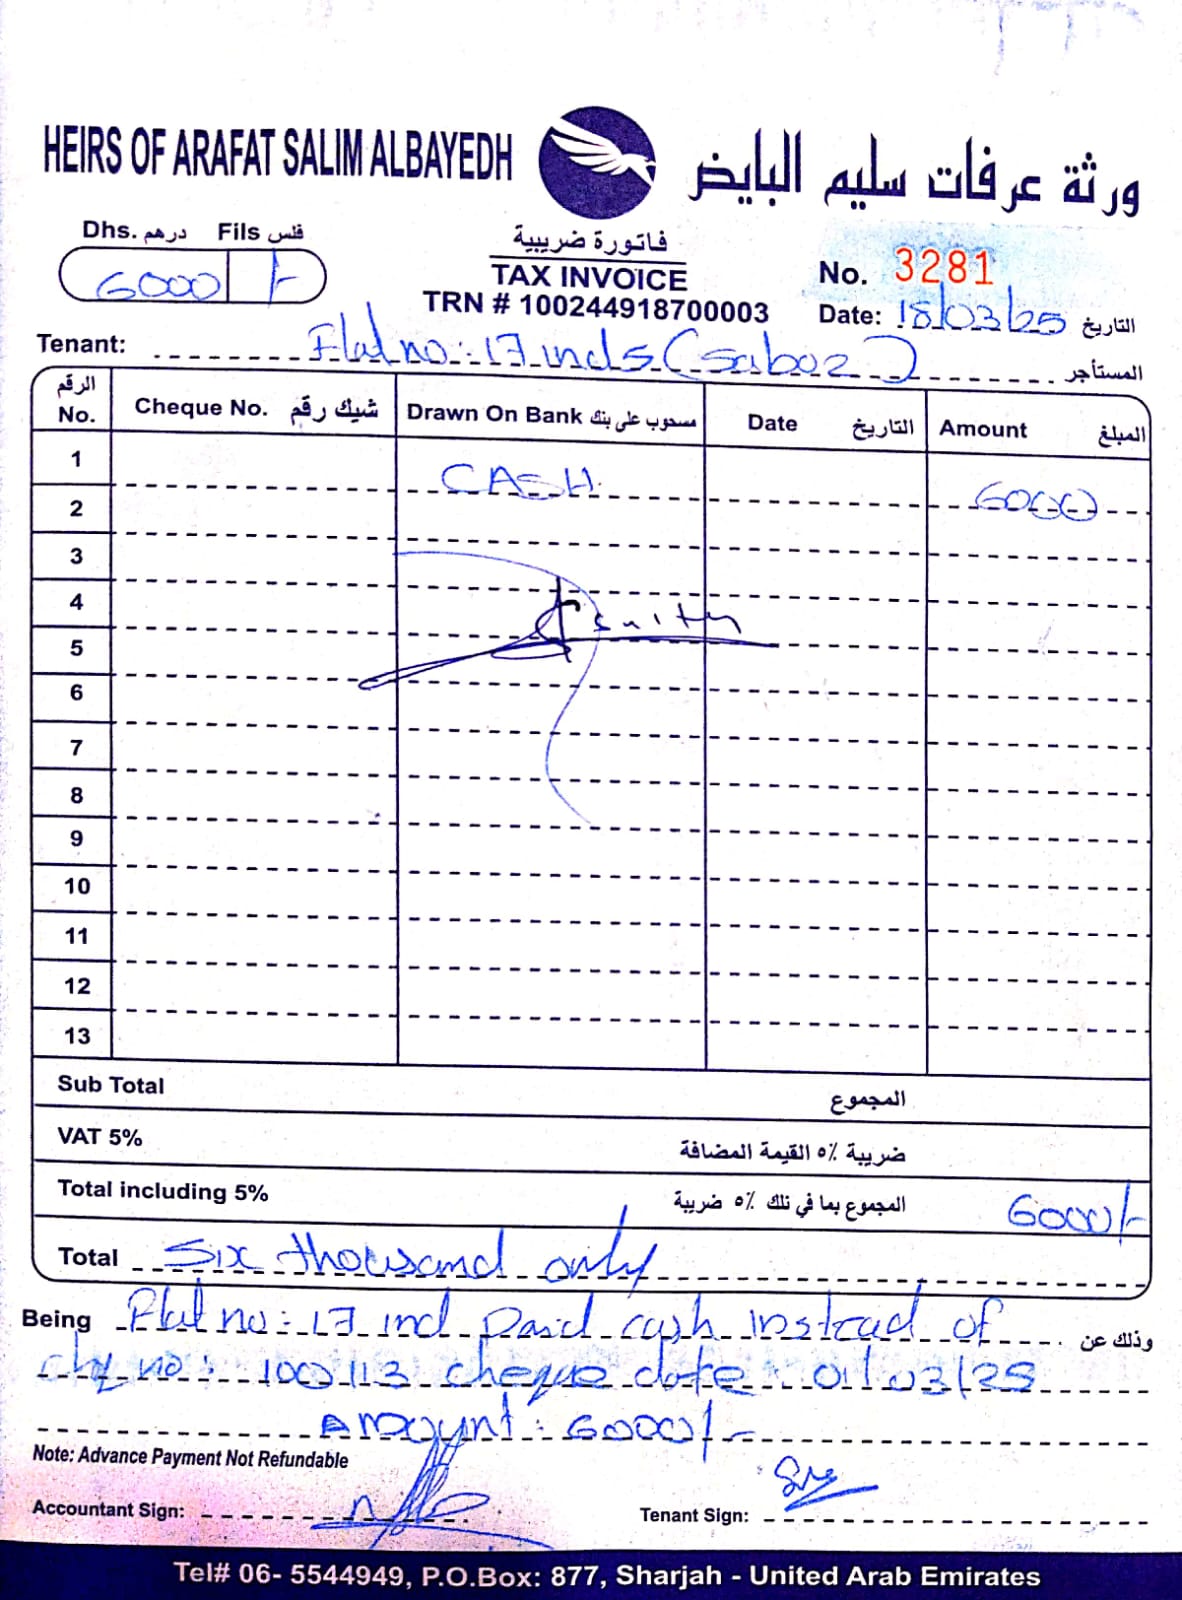 HEIRS OF ARAFAT SALIM ALBAYEDH
ورثة عرفات سليم البايض
Dhs. درهم Fils فلس
6000 /-
فاتورة ضريبية
TAX INVOICE
TRN # 100244918700003
No. 3281
Date: 18/03/25 التاريخ
Tenant: Flat no: 17 ind 5 ( ) المستأجر
الرقم No. Cheque No. شيك رقم Drawn On Bank مسحوب على بنك Date التاريخ Amount المبلغ
1 CASH 6000
2
3
4
5
6
7
8
9
10
11
12
13
Sub Total المجموع
VAT 5% ضريبة ٥٪ القيمة المضافة
Total including 5% المجموع بما في ذلك ٥٪ ضريبة 6000/-
Total Six thousand only
Being Flat no: 17 ind Paid cash instead of وذلك عن
chq no: 100113 cheque date: 01/03/25
Amount: 6000/-
Note: Advance Payment Not Refundable
Accountant Sign:
Tenant Sign:
Tel# 06- 5544949, P.O.Box: 877, Sharjah - United Arab Emirates